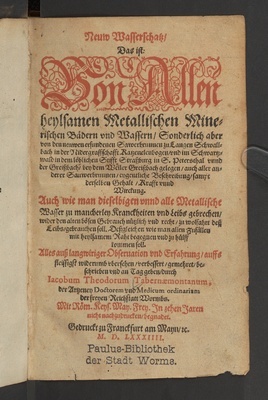 Neuw Wasserschatz/
Das ist:
Von Allen
heylsamen Metallischen Mine-
rischen Bädern vnd Wassern/ Sonderlich aber
von den neuwen erfundenen Sawrbrunnen zu Langen Schwall-
bach in der Nidergraffschafft Katzenelenbogen/ vnd im Schwartz-
wald in dem löblichen Stifft Straßburg in S. Petersthal vnnd
der Greißbach/ bey dem Wiler Greißbach gelegen/ auch aller an-
derer Sauwerbrunnen/ eigentliche Beschreibung/ sampt
derselben Gehalt/ Krafft vnnd
Wirckung.
Auch wie man dieselbigen vnnd alle Metallische
Wasser zu mancherley Kranckheiten vnd Leibs gebrechen/
Leibs gebrechen soll. Deßgleichen wie man allen Zufällen
mit heylsamem Raht begegnen vnd zu hülff
kommen soll.
Alles auß langwiriger Observation vnd Erfahrung/ auffs
fleissigst widerumb vbersehen/ verbessert/ gemehret/ be-
schrieben vnd an Tag geben/ durch
Iacobum Theodorum Tabernæmontanum,
der Artzeney Doctorem/ vnd Medicum ordinarium
der freyen Reichstatt Wormbs.
Mit Röm. Keys. May. Frey. In zehen Jaren
nicht nachzudrucken/ begnadet.
Gedruckt zu Franckfurt am Mayn/ ꝛc.
M. D. LXXXIIII.
Paulus-Bibliothek
der Stadt Worms.